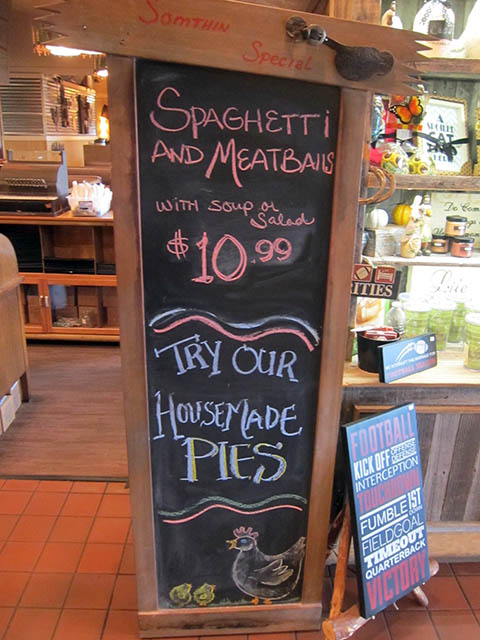 SOMTHIN
Special
SPAGHETTI
AND MEATBALLS
WITH SOUP OR
Salad
$10.99
TRY OUR
HOUSEMADE
PIES
RITIES
FOOTBALL
KICK OFF OFFENSE
DEFENSE
INTERCEPTION
TOUCHDOWN
FUMBLE 1ST
DOWN
FIELDGOAL
TIMEOUT
QUARTERBACK
VICTORY